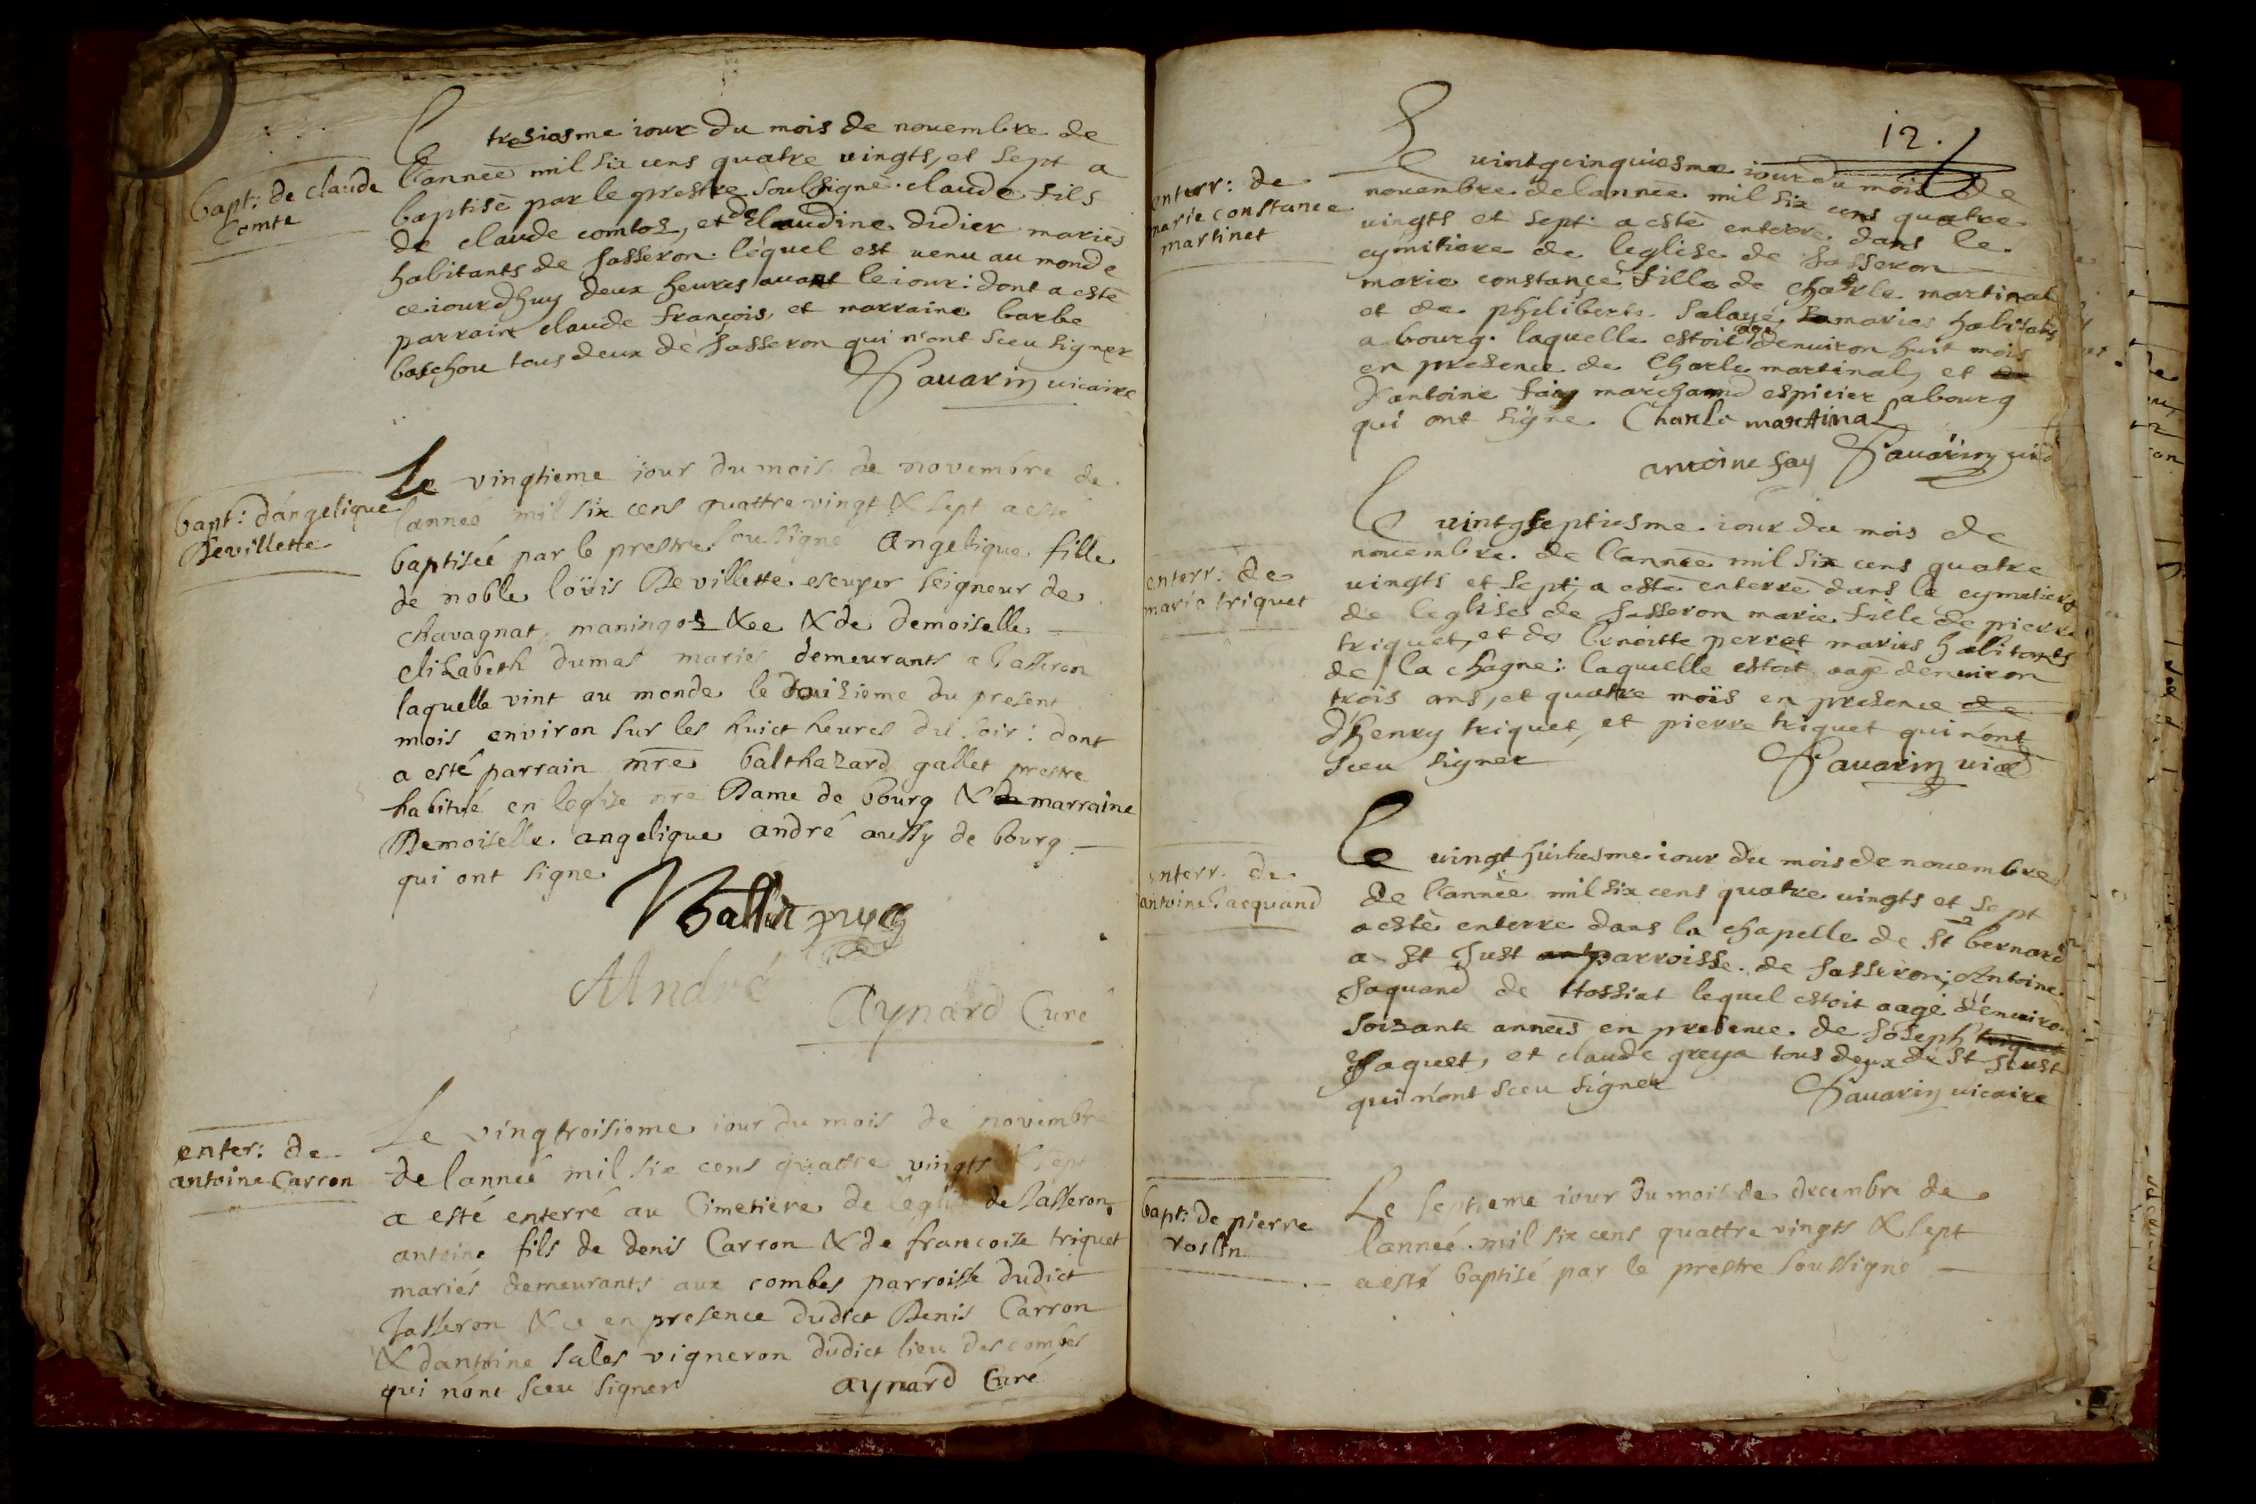 bapt: de claude
Comte
Le tresiesme iour du mois de nouembre de
l'année mil six cens quatre vingts, et sept a
baptisé par le prestre soubsigné claude fils
de claude comtos, et de claudine didier mariés
habitants de Jasseron. lequel est uenu au monde
ce iourdhuy deux heures auant le iour: dont a esté
parrain claude françois, et marraine barbe
baschou tous deux de Jasseron qui n'ont sceu signer
Sauarin uicaire
bapt: d'angelique
Devillette
Le vingtieme iour du mois de novembre de
lanneé mil six cens quattre vingt & sept a esté
baptiseé par le prestre soussigné Angelique fille
de noble loüis De villette escuyer seigneur de
Chavagnat, maningos &ee & de demoiselle
Elizabeth dumas mariés demeurants a Jasseron
laquelle vint au monde le douisieme du present
mois environ sur les huict heures du soir: dont
a esté parrain mre balthazard gallet prestre
habitué en leglise nre Dame de bourg & de marraine
Demoiselle angelique andré aussy de bourg
qui ont signe
AAndré
Aynard Curé
enter: de
antoine Carron
Le vingtroisieme iour du mois de novembre
de lanneé mil six cens quattre vingts & sept
a esté enterré au Cimetiere de l'eglise de Jasseron
antoine fils de denis Carron & de francoise triquet
mariés demeurants aux combes parroisse dudict
Jasseron & ce en presence dudict Denis Carron
& dantoine salès vigneron dudict lieu des combes
qui n'ont sceu signer aynard Curé
12.
enterr: de
marie constance
martinet
Le vintgcinquiesme iour du mois de
nouembre de lannee mil six cens quatre
uingts et sept a esté enterre dans le
cymitiere de leglise de Jasseron
marie constance fille de charle martinal
et de philiberte salayé mariés habitants
a bourg. laquelle estoit agé denuiron huit mois
en presence de Charle martinal, et de
d'antoine fay marchand espicier a bourg
qui ont signe Charle martinal
antoine fay Sauarin uic
enterr: de
marie triquet
Le uintgseptiesme iour du mois de
nouembre de l'année mil six cens quatre
uingts et sept, a esté enterré dans le cymetiere
de leglise de Jasseron marie fille de pierre
triquet, et de benoitte perret mariés habitants
de la chagne: laquelle estoit aagé denuiron
trois ans, et quatre mois en presence de
d'henry triquet, et pierre triquet qui n'ont
sceu signer Sauarin uic
enterr. de
antoine Jacquand
Le uingt huitiesme iour du mois de nouembre
de l'année mil six cens quatre uingts et sept
a esté enterre dans la chapelle de St bernard
a St Just parroisse de Jasseron, Antoine
Jaquand de Hossiat lequel estoit aagé d'enuiron
soixante années en presence de Joseph triquet
Jaquet, et claude greya tous deux de St Just
qui n'ont sceu signer Sauarin uicaire
bapt: de pierre
roslin
Le septieme iour du mois de decembre de
lanneé mil six cens quattre vingts & sept
a esté baptisé par le prestre soussigné